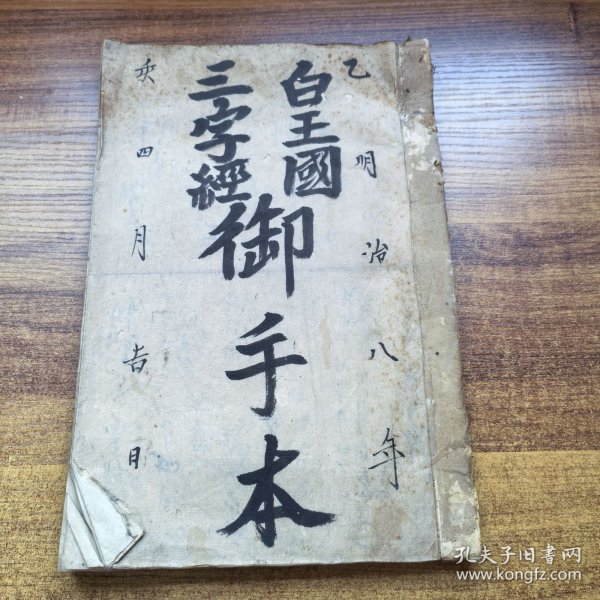 乙 明治八年
皇國
三字經
御手本
亥 四月吉日
孔夫子旧书网
www.kongfz.com